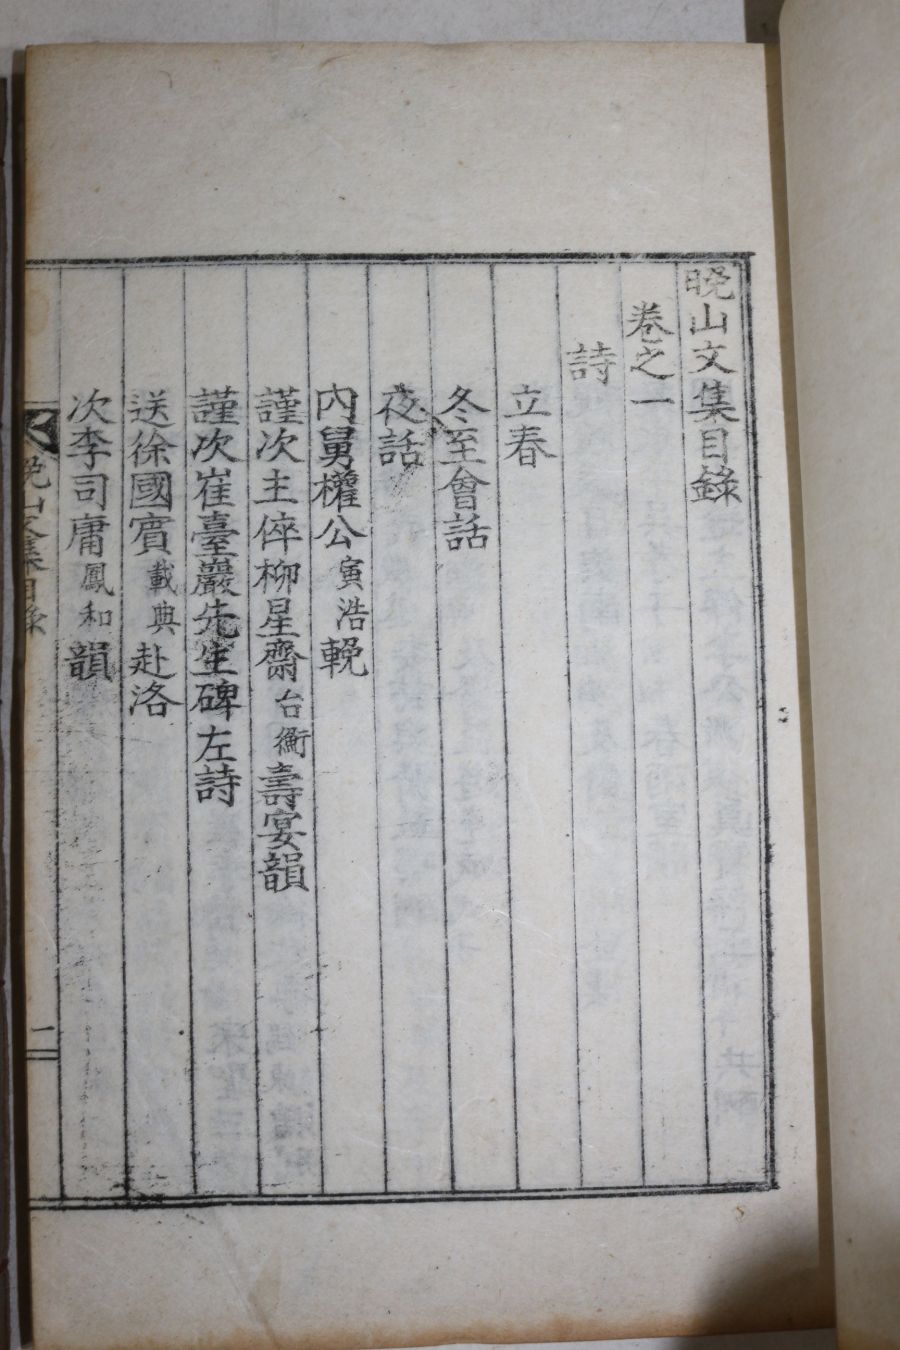 晩山文集目錄
卷之一
詩
立春
冬至會話
夜話
內舅權公寅浩輓
謹次主倅柳星齋台衡壽宴韻
謹次崔臺巖先生碑左詩
送徐國賓載典赴洛
次李司庸鳳和韻
晩山文集目錄
一